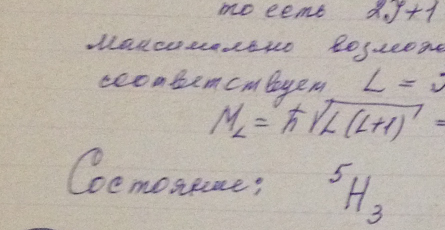 то есть 2J+1
максимально возмож
соответствует L =
M_L = ħ√L(L+1) =
Состояние: ⁵H₃